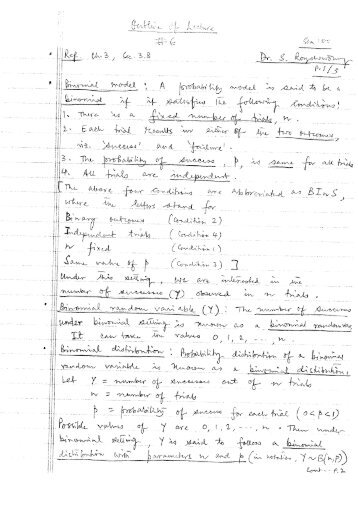 Outline of Lecture
# 6
Dr. S. Roychoudhury
P.1/3
* Ref. Ch. 3, Sec 3.8
* Binomial model: A probability model is said to be a
binomial if it satisfies the following conditions:
1. There is a fixed number of trials, n.
2. Each trial results in either of the two outcomes,
viz. 'success' and 'failure'.
3. The probability of success, p, is same for all trials
4. All trials are independent.
[The above four conditions are abbreviated as BInS,
where the letters stand for
Binary outcomes (Condition 2)
Independent trials (Condition 4)
n fixed (Condition 1)
Same value of p (Condition 3) ]
Under this setting, we are interested in the
number of successes (Y) observed in n trials.
* Binomial random variable (Y): The number of successes
under binomial setting is known as a binomial random var
It can take on values 0, 1, 2, ..., n.
* Binomial distribution: Probability distribution of a binomial
random variable is known as a binomial distribution.
Let Y = number of successes out of n trials
n = number of trials
p = probability of success for each trial (0≤p≤1)
Possible values of Y are 0, 1, 2, ..., n. Then under
binomial setting, Y is said to follow a binomial
distribution with parameters n and p (in notation, Y~B(n,p))
Cont... P.2